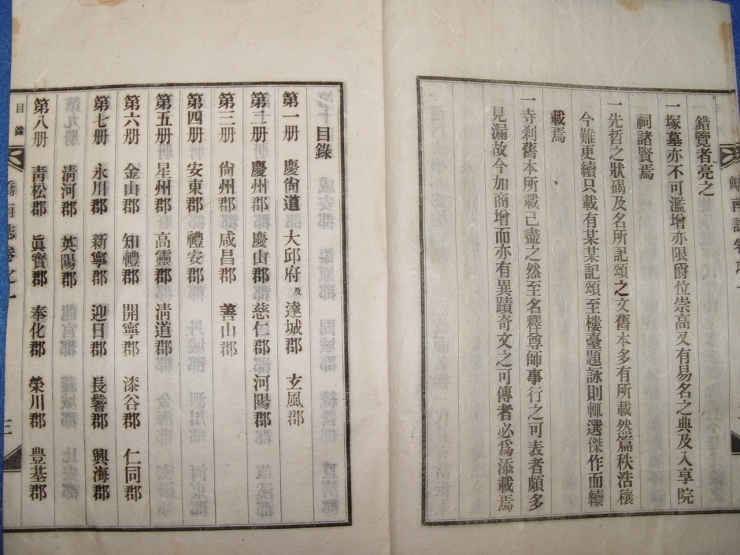 錯覽者亮之
一塚墓亦不可濫增亦限爵位崇高又有易名之典及入享院
祠諸賢焉
一先哲之狀碣及名所記頌之文舊本多有所載然篇秩浩穰
今難更續只載有某某記頌至樓臺題詠則輒選傑作而續
載焉
一寺刹舊本所載已盡之然至名釋尊師事行之可表者頗多
見漏故今加商增而亦有異蹟奇文之可傳者必爲添載焉
目錄
第一册 慶尙道 大邱府及達城郡 玄風郡
第二册 慶州郡 慶山郡 慈仁郡 河陽郡
第三册 尙州郡 咸昌郡 善山郡
第四册 安東郡 禮安郡
第五册 星州郡 高靈郡 淸道郡
第六册 金山郡 知禮郡 開寧郡 漆谷郡 仁同郡
第七册 永川郡 新寧郡 迎日郡 長鬐郡 興海郡
淸河郡 英陽郡
第八册 靑松郡 眞寶郡 奉化郡 榮川郡 豊基郡
目錄
嶠南誌卷之一
三